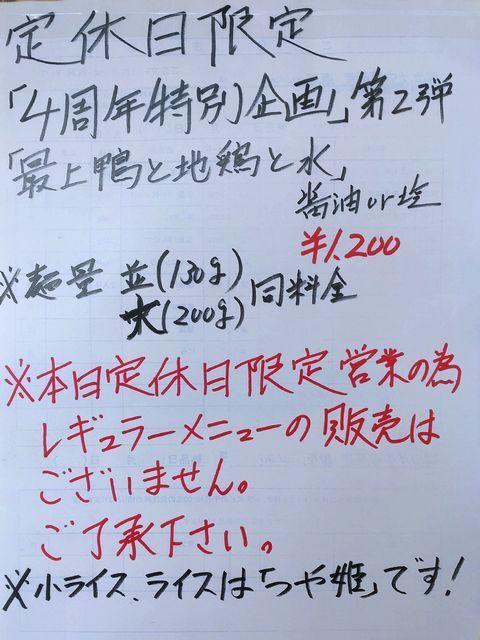 定休日限定
「4周年特別企画」第2弾
「最上鴨と地鶏と水」
醤油or塩
¥1.200
※麺量 並(130g)
大(200g) 同料金
※本日定休日限定営業の為
レギュラーメニューの販売は
ございません。
ご了承下さい。
※小ライス、ライスは「つや姫」です!